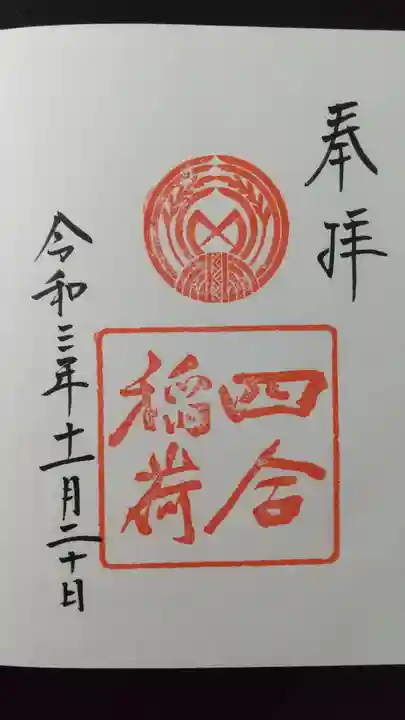 奉拝
四合
稲荷
令和三年十一月二十日